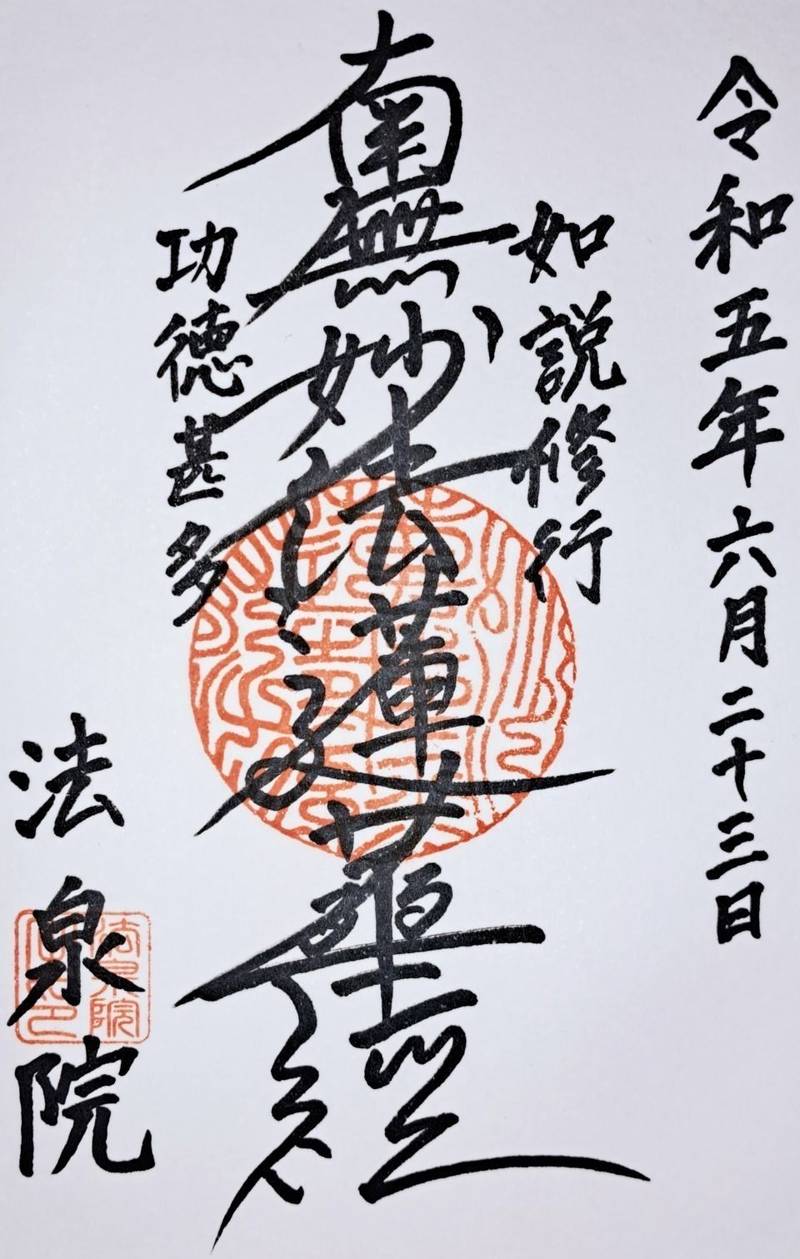 令和五年六月二十三日
如説修行
南無妙法蓮華経
功徳甚多
法泉院
法泉院